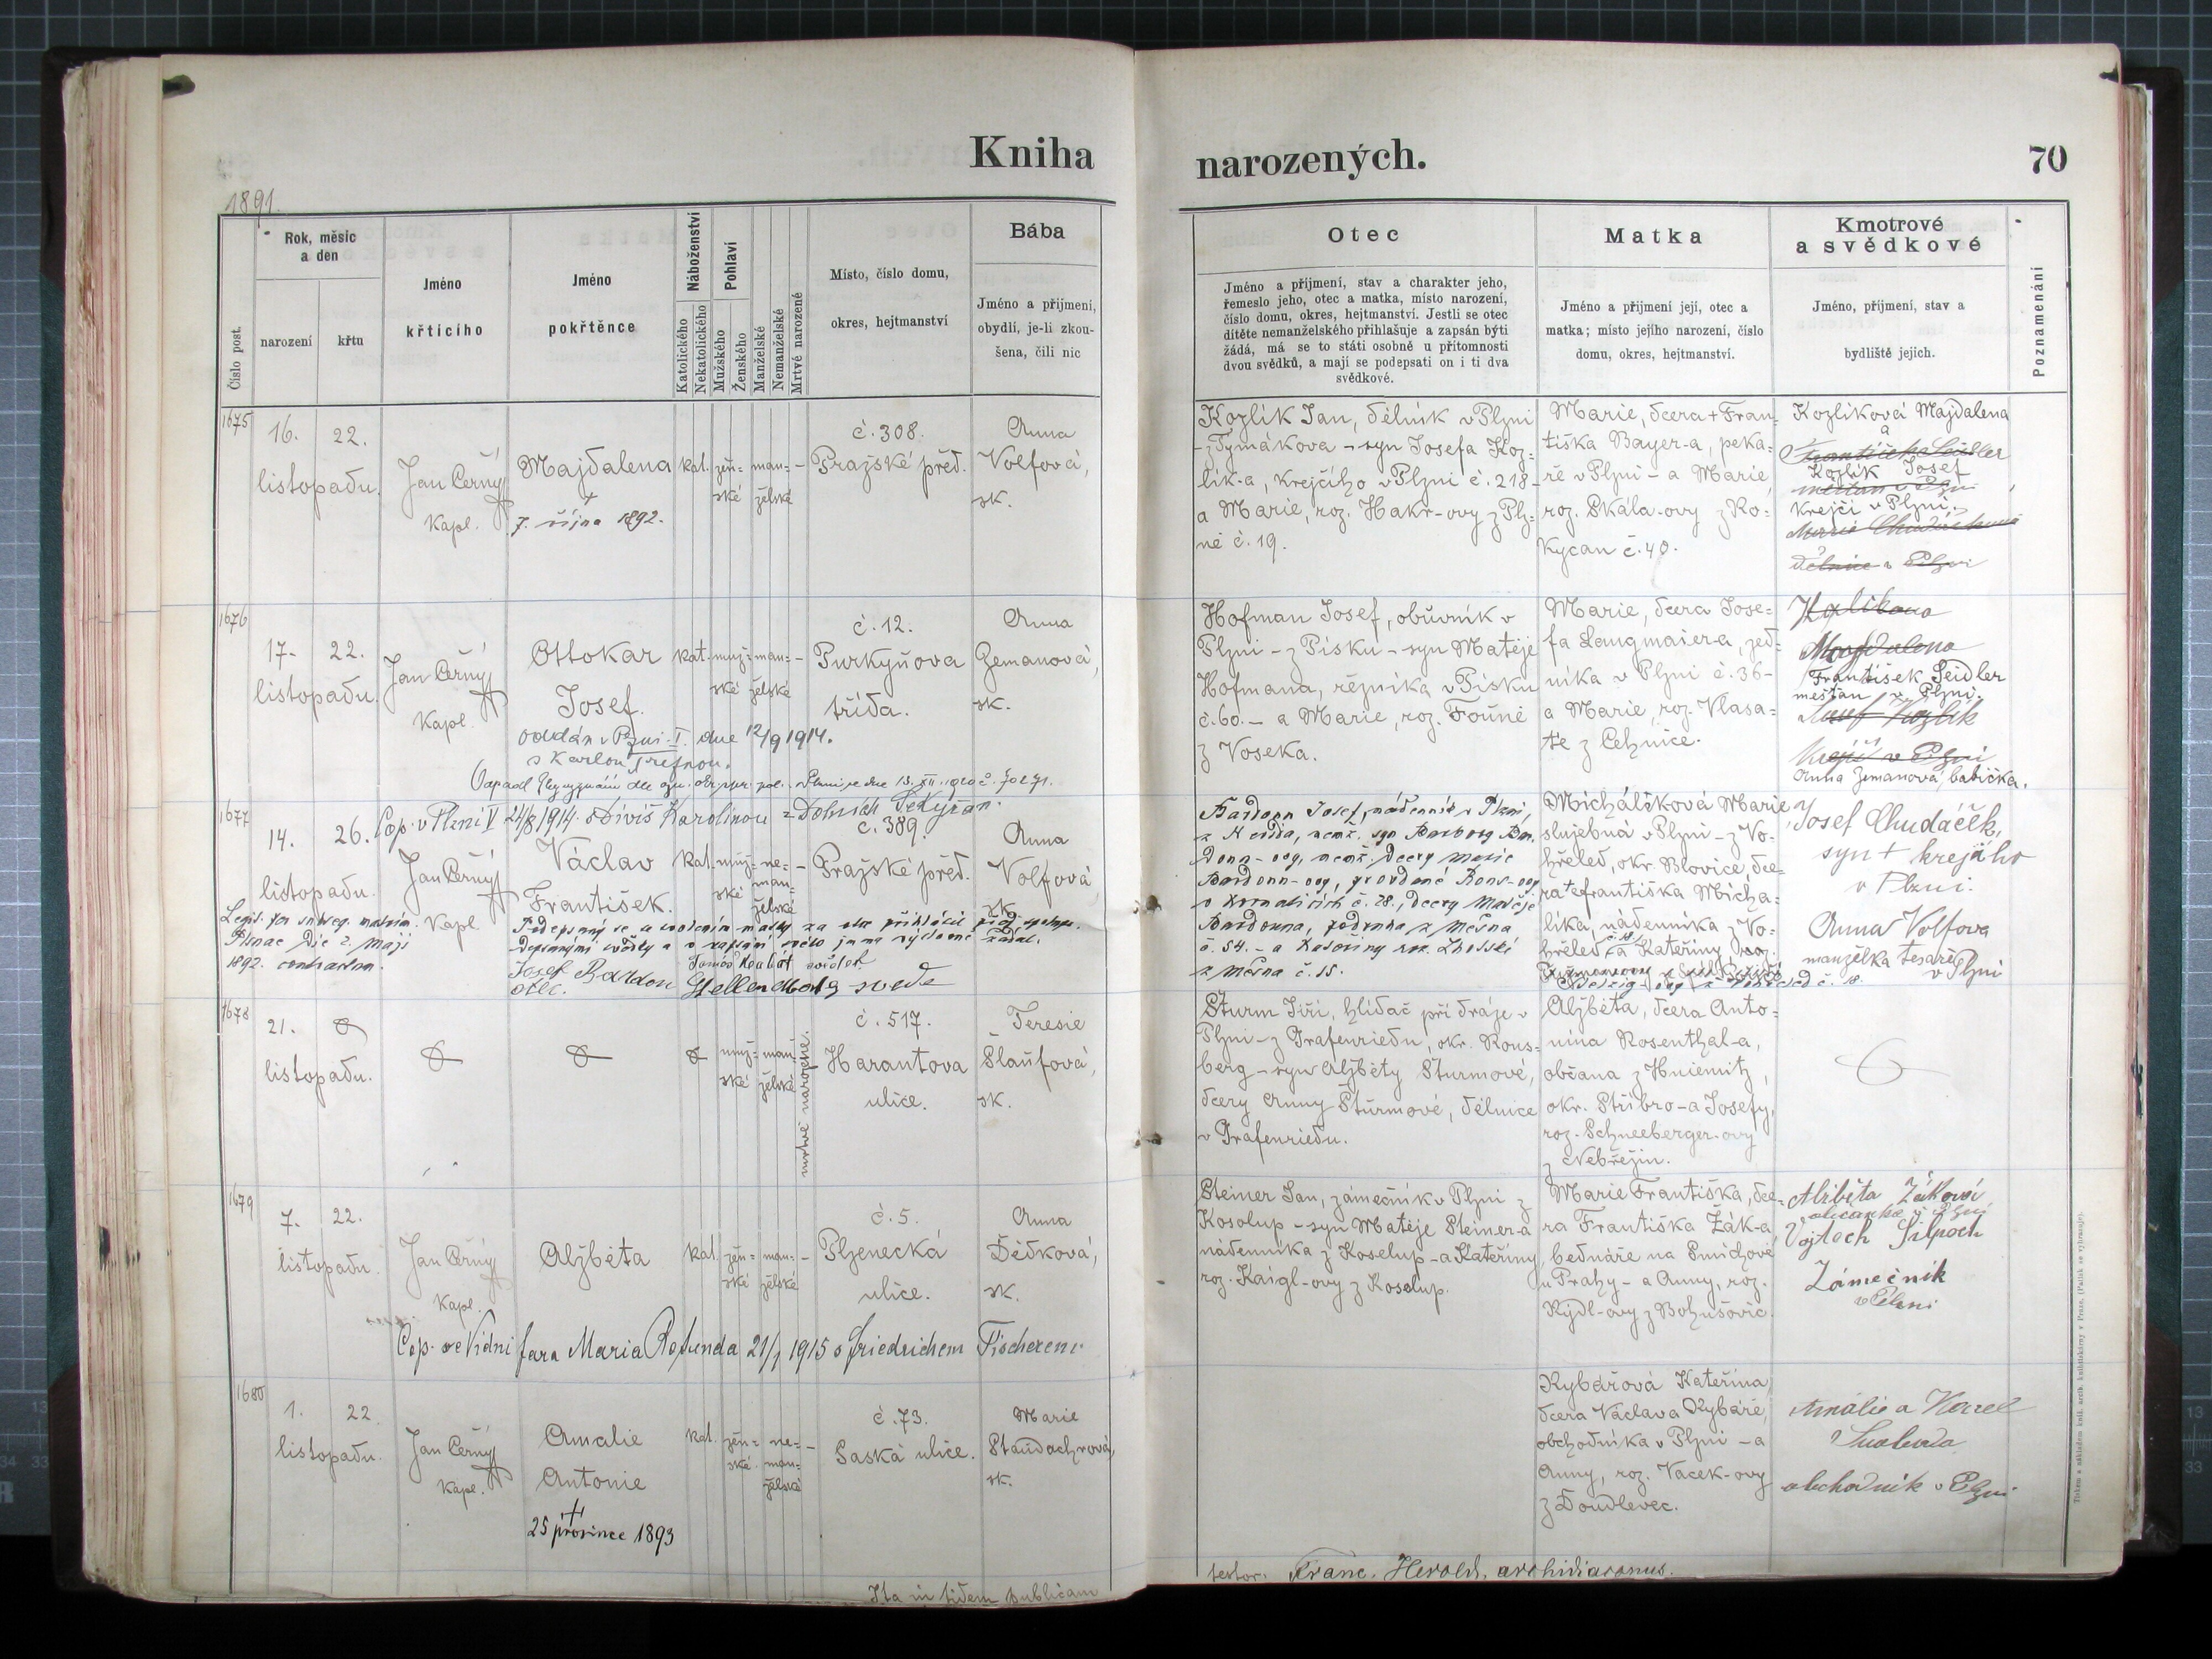 Kniha
narozených.
70
1891.
Číslo post.
Rok, měsíc
a den
narození
křtu
Jméno
křtícího
Jméno
pokřtěnce
Náboženství
Katolického
Nekatolického
Pohlaví
Mužského
Ženského
Manželské
Nemanželské
Mrtvě narozené
Místo, číslo domu,
okres, hejtmanství
Bába
Jméno a příjmení,
obydlí, je-li zkou-
šena, čili nic
Otec
Jméno a příjmení, stav a charakter jeho,
řemeslo jeho, otec a matka, místo narození,
číslo domu, okres, hejtmanství. Jestli se otec
dítěte nemanželského přihlašuje a zapsán býti
žádá, má se to státi osobně u přítomnosti
dvou svědků, a mají se podepsati on i ti dva
svědkové.
Matka
Jméno a příjmení její, otec a
matka; místo jejího narození, číslo
domu, okres, hejtmanství.
Kmotrové
a svědkové
Jméno, příjmení, stav a
bydliště jejich.
Poznamenání
1675
16. 22.
listopadu.
Jan Černý
Kapl.
Majdalena
†
7. října 1892.
kat.
žen=
ské
man=
želské
-
č. 308.
Pražské před.
Anna
Volfová,
zk.
Kozlík Jan, dělník v Plzni
- z Tymákova - syn Josefa Koz=
lík-a, krejčího v Plzni č. 218-
a Marie, roz. Hakr-ovy z Plz=
ně č. 19.
Marie, dcera + Fran=
tiška Bayer-a, peka=
ře v Plzni - a Marie,
roz. Skála-ovy z Ro=
kycan č. 40.
Kozlíková Majdalena
a
Františka Seidler
Kozlík Josef
měšťan v Plzni
krejčí v Plzni.
Marie
dělnice v Plzni
1676
17. 22.
listopadu.
Jan Černý
Kapl.
Ottokar
Josef.
oddán v Plzni I. dne 12/9 1914.
s Karlou
kat.
muž=
ské
man=
želské
-
č. 12.
Purkyňova
třída.
Anna
Zemanová,
zk.
Hofman Josef, obuvník v
Plzni - z Písku - syn Matěje
Hofmana, řezníka v Písku
č. 60. - a Marie, roz. Founě
z Voseka.
Marie, dcera Jose=
fa Langmaier-a, zed=
níka v Plzni č. 36-
a Marie, roz. Vlasa=
té z Lehnice.
Kozlíková
Magdalena
František Seidler
měšťan v Plzni.
Josef Kozlík
krejčí v Plzni
Anna Zemanová, babička.
1677
Cop. v Plzni V 24/8 1914. s Diviš Karolinou z Dolních Sekyřan.
14. 26.
listopadu.
Jan Černý
Kapl
Václav
František.
kat.
muž=
ské
ne=
man=
želské
-
č. 389.
Pražské před.
Anna
Volfová
zk.
1892.
Josef Bardon
otec.
svědek
Bardonn Josef, nádenník v Plzni,
nemž. syn Barbory Bar=
donn-ovy, nemž. dcery Marie
Bardonn-ovy,
č. 28., dcery Matěje
Bardonna,
č. 54. - a Kateřiny roz.
č. 55.
Michálíková Marie,
služebná v Plzni - z Vo=
hřeled, okr. Blovice, dce=
ra + Františka Michá=
líka, nádenníka z Vo=
hřeled č. 18 a Kateřiny roz.
Josef Chudáček,
syn + krejčího
v Plzni.
Anna Volfova
manželka tesaře
v Plzni
1678
21.
listopadu.
muž=
ské
man=
želské
mrtvě narozené.
č. 517.
Harantova
ulice.
Teresie
Plaufová,
zk.
Šturm Jiří, hlídač při dráze v
Plzni - z Grafenriedu, okr. Rons=
berg - syn Alžběty Šturmové,
dcery Anny Šturmové, dělnice
v Grafenriedu.
Alžběta, dcera Anto=
nína Rosenthal-a,
občana z Hniemitz,
okr. Stříbro - a Josefy,
roz. Schneeberger-ovy
z Nebřezin.
1679
7. 22.
listopadu.
Jan Černý
Kapl.
Alžběta
kat.
žen=
ské
man=
želské
-
č. 5.
Plzenecká
ulice.
Anna
Dědková,
zk.
Cop. ve Vídni fara Maria Rotunda 21/1 1915 s Friedrichem Fischerem.
Steiner Jan, zámečník v Plzni z
Kosolup - syn Matěje Steiner-a
nádenníka z Koselup - a Kateřiny,
roz. Kaigl-ovy z Koselup.
Marie Františka, dce=
ra Františka Žák-a,
bednáře na Smíchově
u Prahy - a Anny, roz.
Rýdl-ovy z Bohušovic.
Alžběta Žáková
občanka v Plzni
Vojtěch
Zámečník
v Plzni
1680
1. 22.
listopadu.
Jan Černý
Kapl.
Amalie
Antonie
†
25 prosince 1893
kat.
žen=
ské
ne=
man=
želské
-
č. 73.
Saská ulice.
Marie
Staudachrová,
zk.
Rybářová Kateřina,
dcera Václava Rybáře,
obchodníka v Plzni - a
Anny, roz. Vacek-ovy
z Doudlevec.
Amálie a Karel
Svoboda
obchodník v Plzni
Ita in fidem publicam
testor: Franc. Herold, archidiaconus.